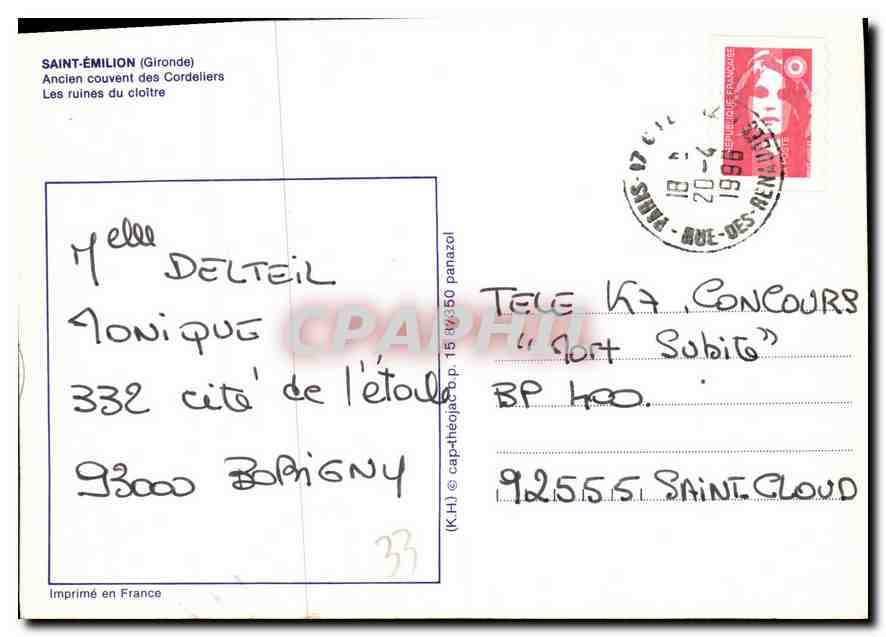 SAINT-ÉMILION (Gironde)
Ancien couvent des Cordeliers
Les ruines du cloître
Melle DELTEIL
MONIQUE
332 cité de l'étoile
93000 BOBIGNY
33
Imprimé en France
(K.H.) © cap-théojac b.p. 15 87350 panazol
RÉPUBLIQUE FRANÇAISE
LA POSTE
PARIS-17
RUE-DES-RENAUDES
18
20-4
1996
TELE K7. CONCOURS
"Mort Subite"
BP 400.
92555 SAINT-CLOUD
CPAPHIL